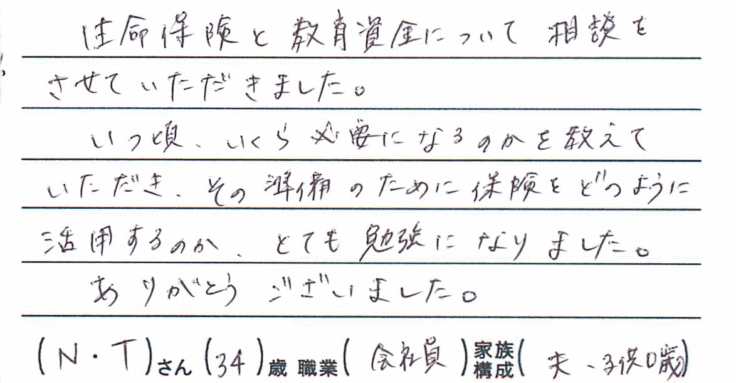 生命保険と教育資金について 相談を
させていただきました。
いつ頃、いくら必要になるのかを教えて
いただき、その準備のために保険をどのように
活用するのか、とても勉強になりました。
ありがとうございました。
(N・T)さん(34)歳 職業(会社員)家族構成(夫、子供0歳)